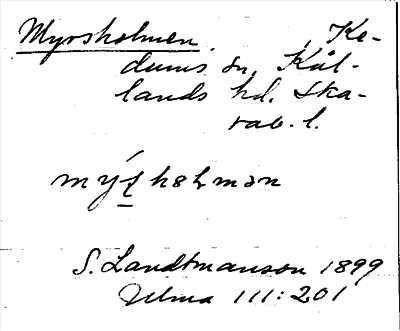 Myrsholmen, Ke-
dums sn, Kål-
lands hd. Ska-
rab. l.
S. Landtmanson 1899
Ulma 111:201